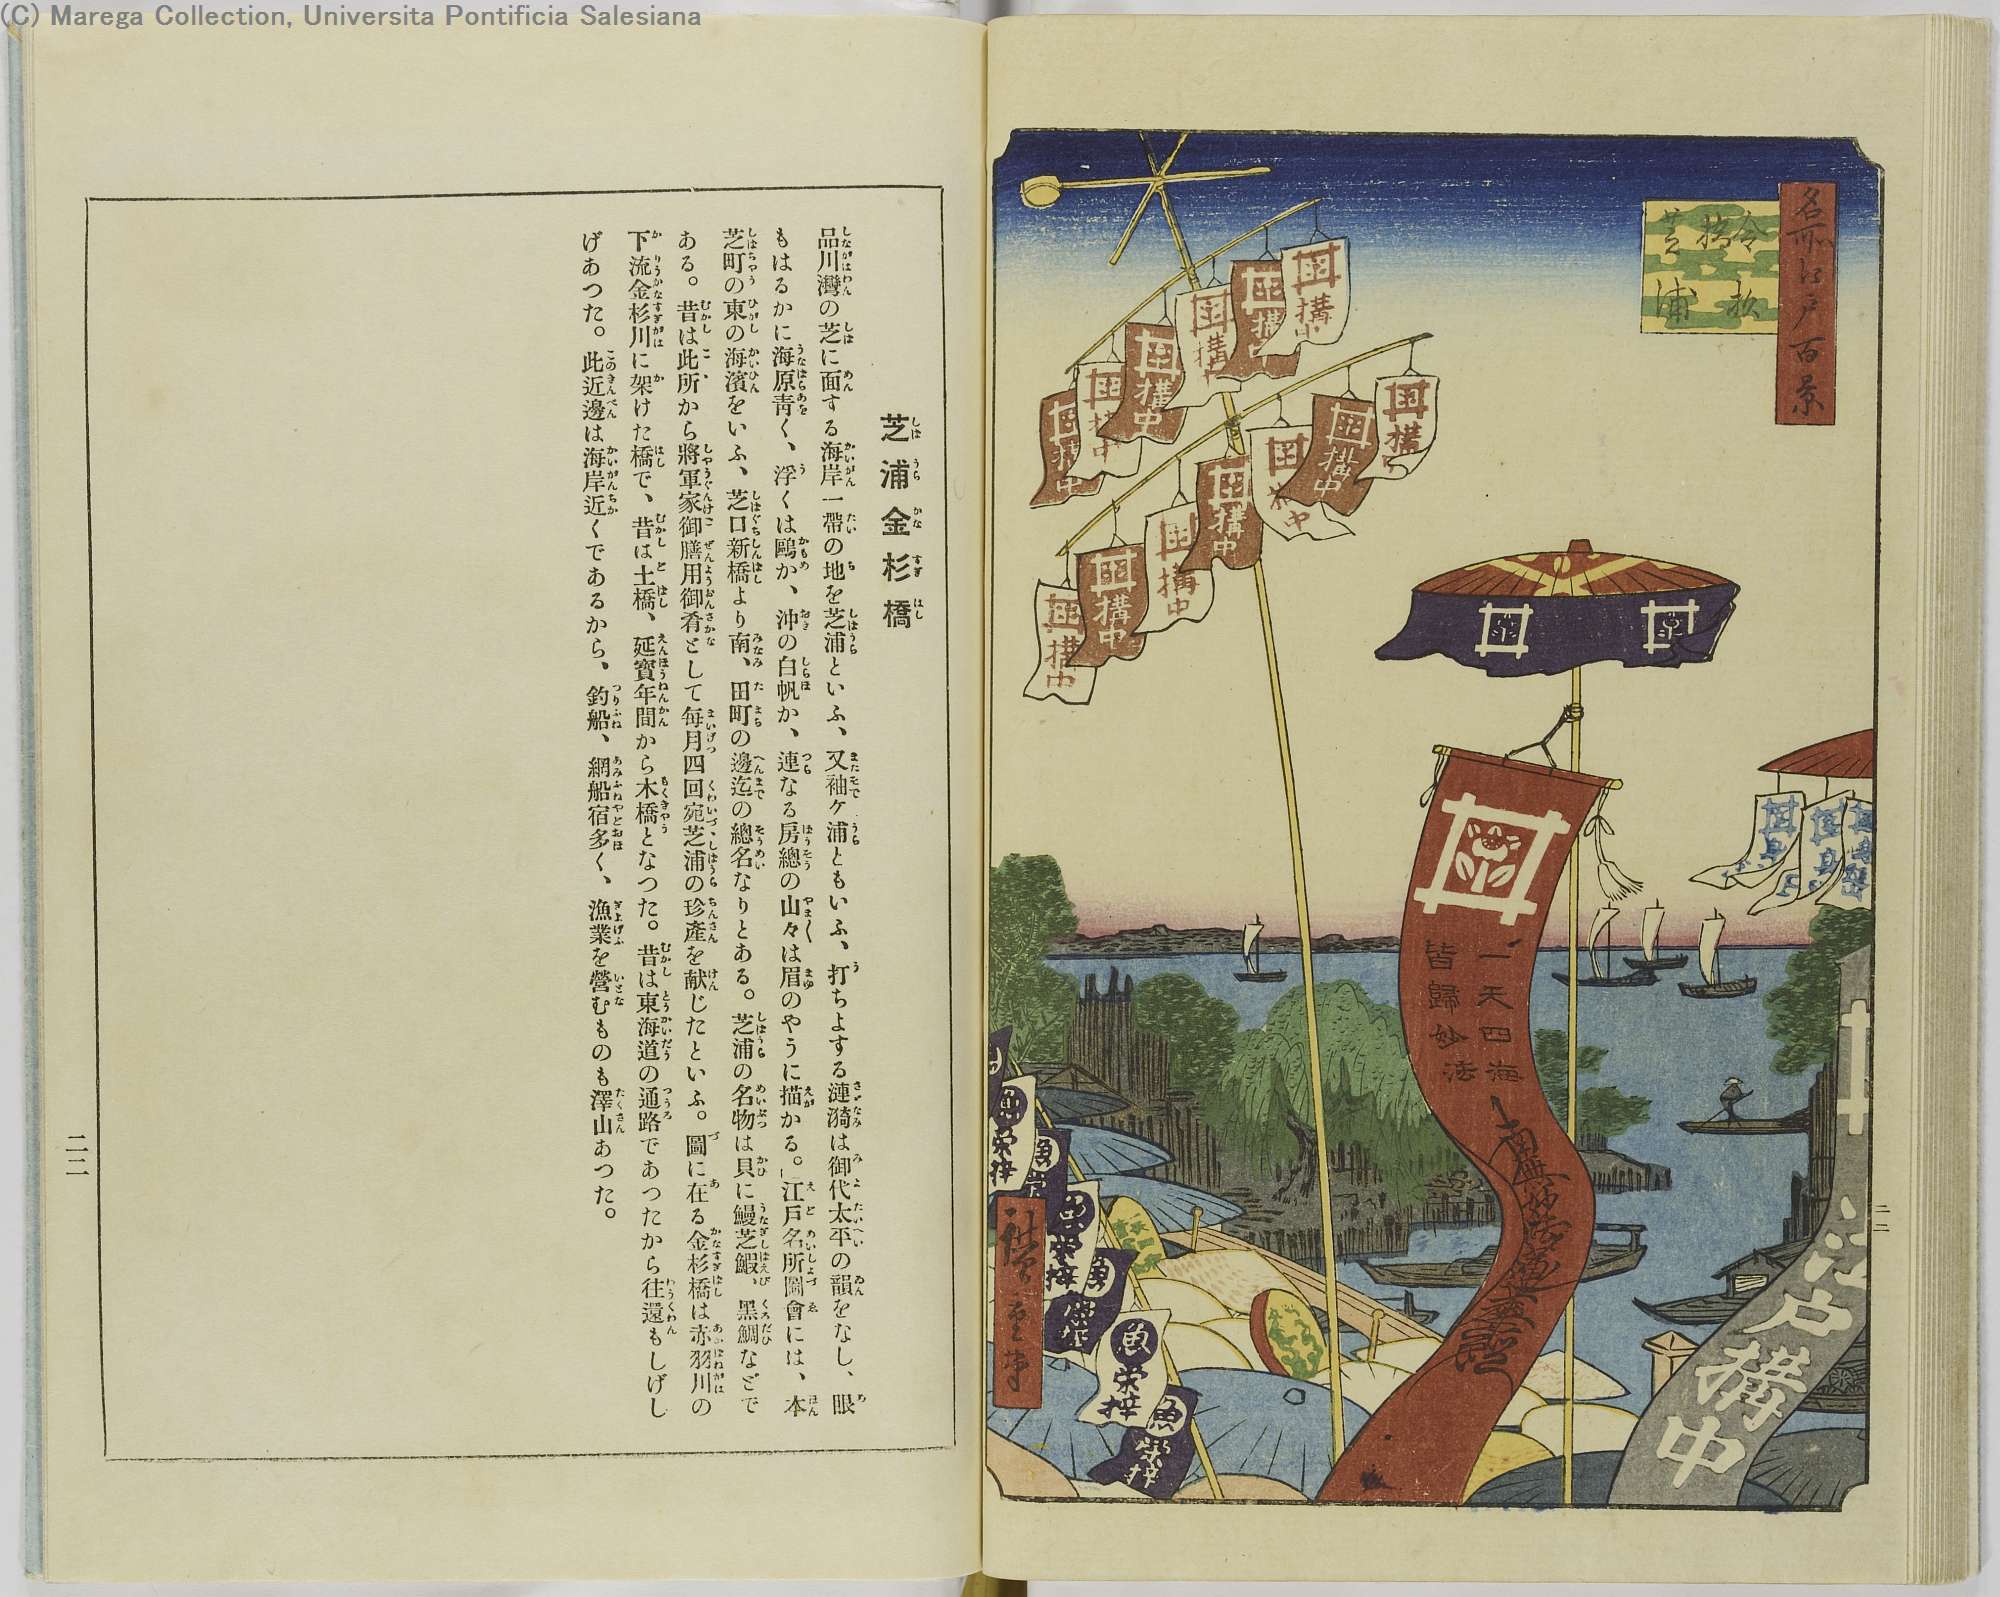 (C) Marega Collection, Universita Pontificia Salesiana
名所江戸百景
金杉
橋
芝浦
講中
講中
講中
講中
講中
講中
講中
一天四海
皆歸妙法
南無妙法蓮華經
江戸講中
魚栄梓
魚栄梓
魚栄梓
魚栄梓
廣重筆
二二
芝浦金杉橋
品川灣の芝に面する海岸一帶の地を芝浦といふ、又袖ヶ浦ともいふ、打ちよする漣漪は御代太平の韻をなし、眼
もはるかに海原靑く、浮くは鷗か、沖の白帆か、連なる房總の山々は眉のやうに描かる。「江戸名所圖會には、本
芝町の東の海濱をいふ、芝口新橋より南、田町の邊迄の總名なりとある。芝浦の名物は貝に鰻芝鰕、黑鯛などで
ある。昔は此所から將軍家御膳用御肴として每月四回宛芝浦の珍產を献じたといふ。圖に在る金杉橋は赤羽川の
下流金杉川に架けた橋で、昔は土橋、延寳年間から木橋となつた。昔は東海道の通路であつたから往還もしげし
げあつた。此近邊は海岸近くであるから、釣船、網船宿多く、漁業を營むものも澤山あつた。
二二